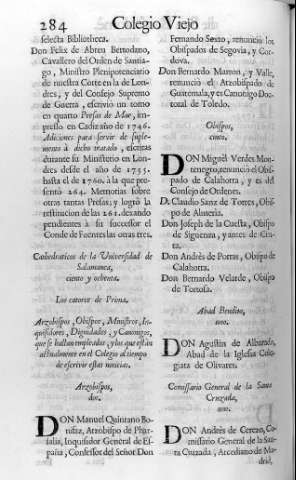 284 Colegio Viejo
selecta Bibliotheca.
Don Felix de Abreu Bertodano,
Cavallero del Orden de Santia-
go, Ministro Plenipotenciario
de nuestra Corte en la de Lon-
dres, y del Consejo Supremo
de Guerra, escrivio un tomo
en quarto Presas de Mar, im-
presso en Cadiz año de 1746.
Adiciones para servir de suple-
mento à dicho tratado, escritas
durante su Ministerio en Lon-
dres desde el año de 1755.
hasta el de 1760. à la que pre-
sentò 264. Memorias sobre
otras tantas Presas; y logrò la
restitucion de las 261. dexando
pendientes à su successor el
Conde de Fuentes las otras tres.
Cathedraticos de la Universidad de
Salamanca,
ciento y ochenta.
Los catorce de Prima.
Arzobispos, Obispos, Ministros, In-
quisidores, Dignidades, y Canonigos,
que se hallan empleados, y los que estàn
actualmente en el Colegio al tiempo
de escrivir estas noticias.
Arzobispos,
dos.
DON Manuel Quintano Bo-
nifaz, Arzobispo de Phar-
salia, Inquisidor General de Es-
paña, Confessor del Señor Don
Fernando Sexto, renunciò los
Obispados de Segovia, y Cor-
dova.
Don Bernardo Marron, y Valle,
renunciò el Arzobispado de
Guatemala, y es Canonigo Doc-
toral de Toledo.
Obispos,
cinco.
DON Miguèl Verdes Mon-
tenegro, renunciò el Obis-
pado de Calahorra, y es del
Consejo de Ordenes.
D. Claudio Sanz de Torres, Obis-
po de Almeria.
Don Joseph de la Cuesta, Obispo
de Siguenza, y antes de Ceu-
ta.
Don Andrès de Porras, Obispo de
Calahorra.
Don Bernardo Velarde, Obispo
de Tortosa.
Abad Bendito,
uno.
DON Agustin de Albarado,
Abad de la Iglesia Cole-
giata de Olivares.
Comissario General de la Santa
Cruzada,
uno.
DON Andrès de Cerezo, Co-
missario General de la San-
ta Cruzada, Arcediano de Ma-
drid,